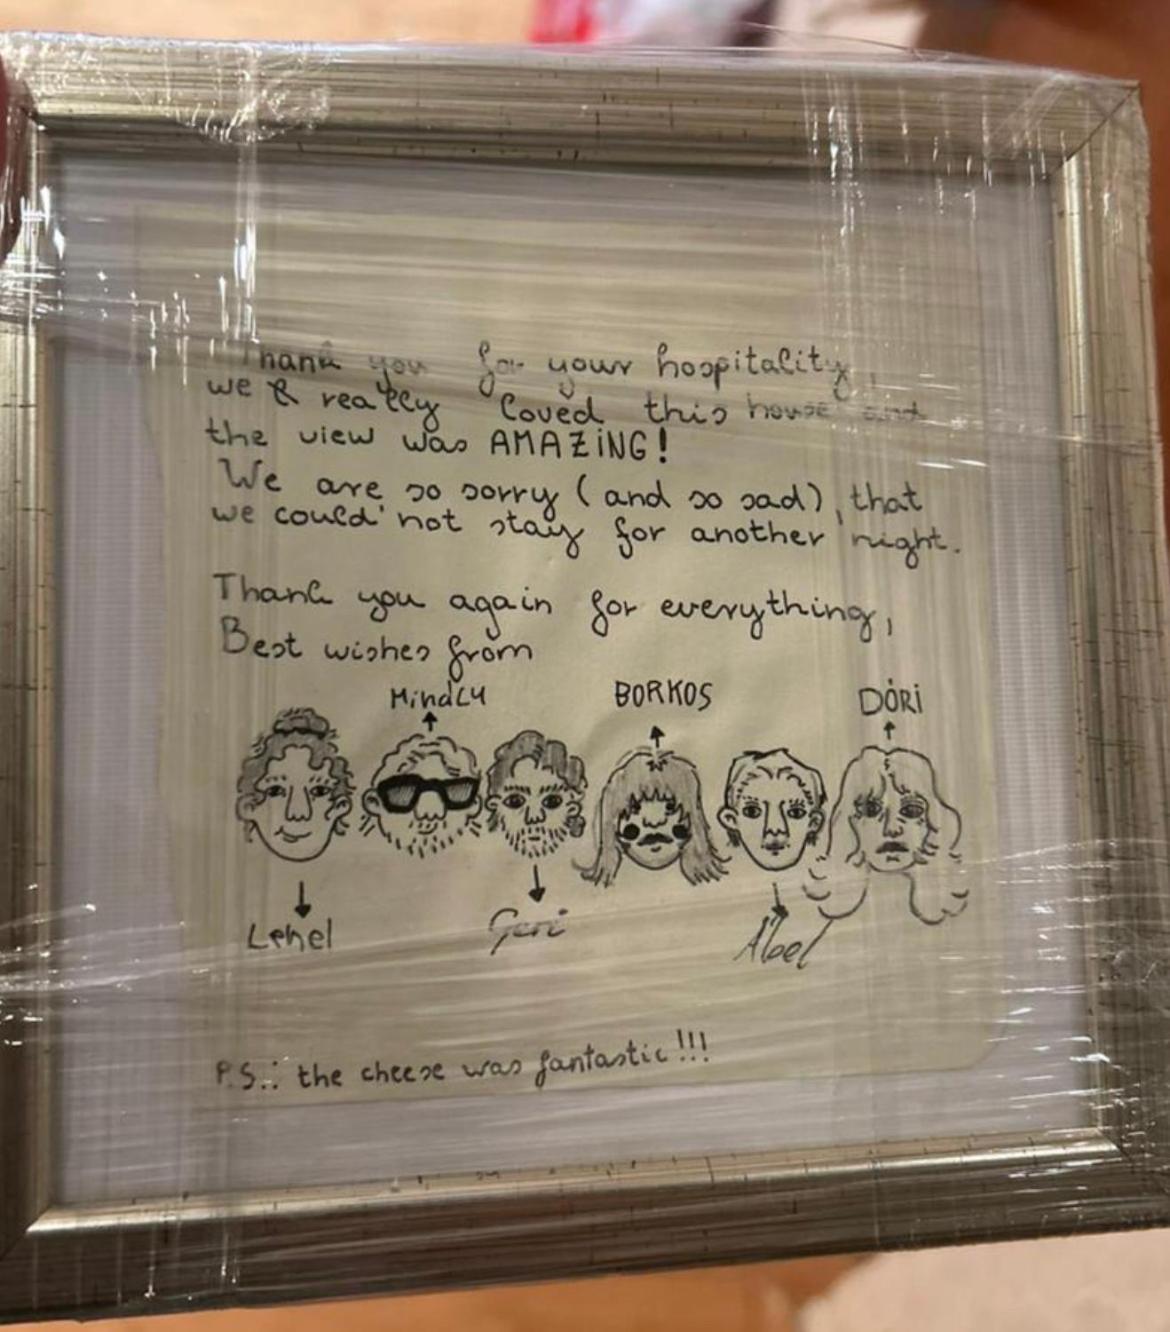 Thank you for your hospitality,
we really loved this house and
the view was AMAZiNG!
We are so sorry (and so sad), that
we could not stay for another night.
Thank you again for everything,
Best wishes from
BORKOS
DÓRi
Lehel
Geri
Ábel
P.S.: the cheese was fantastic!!!